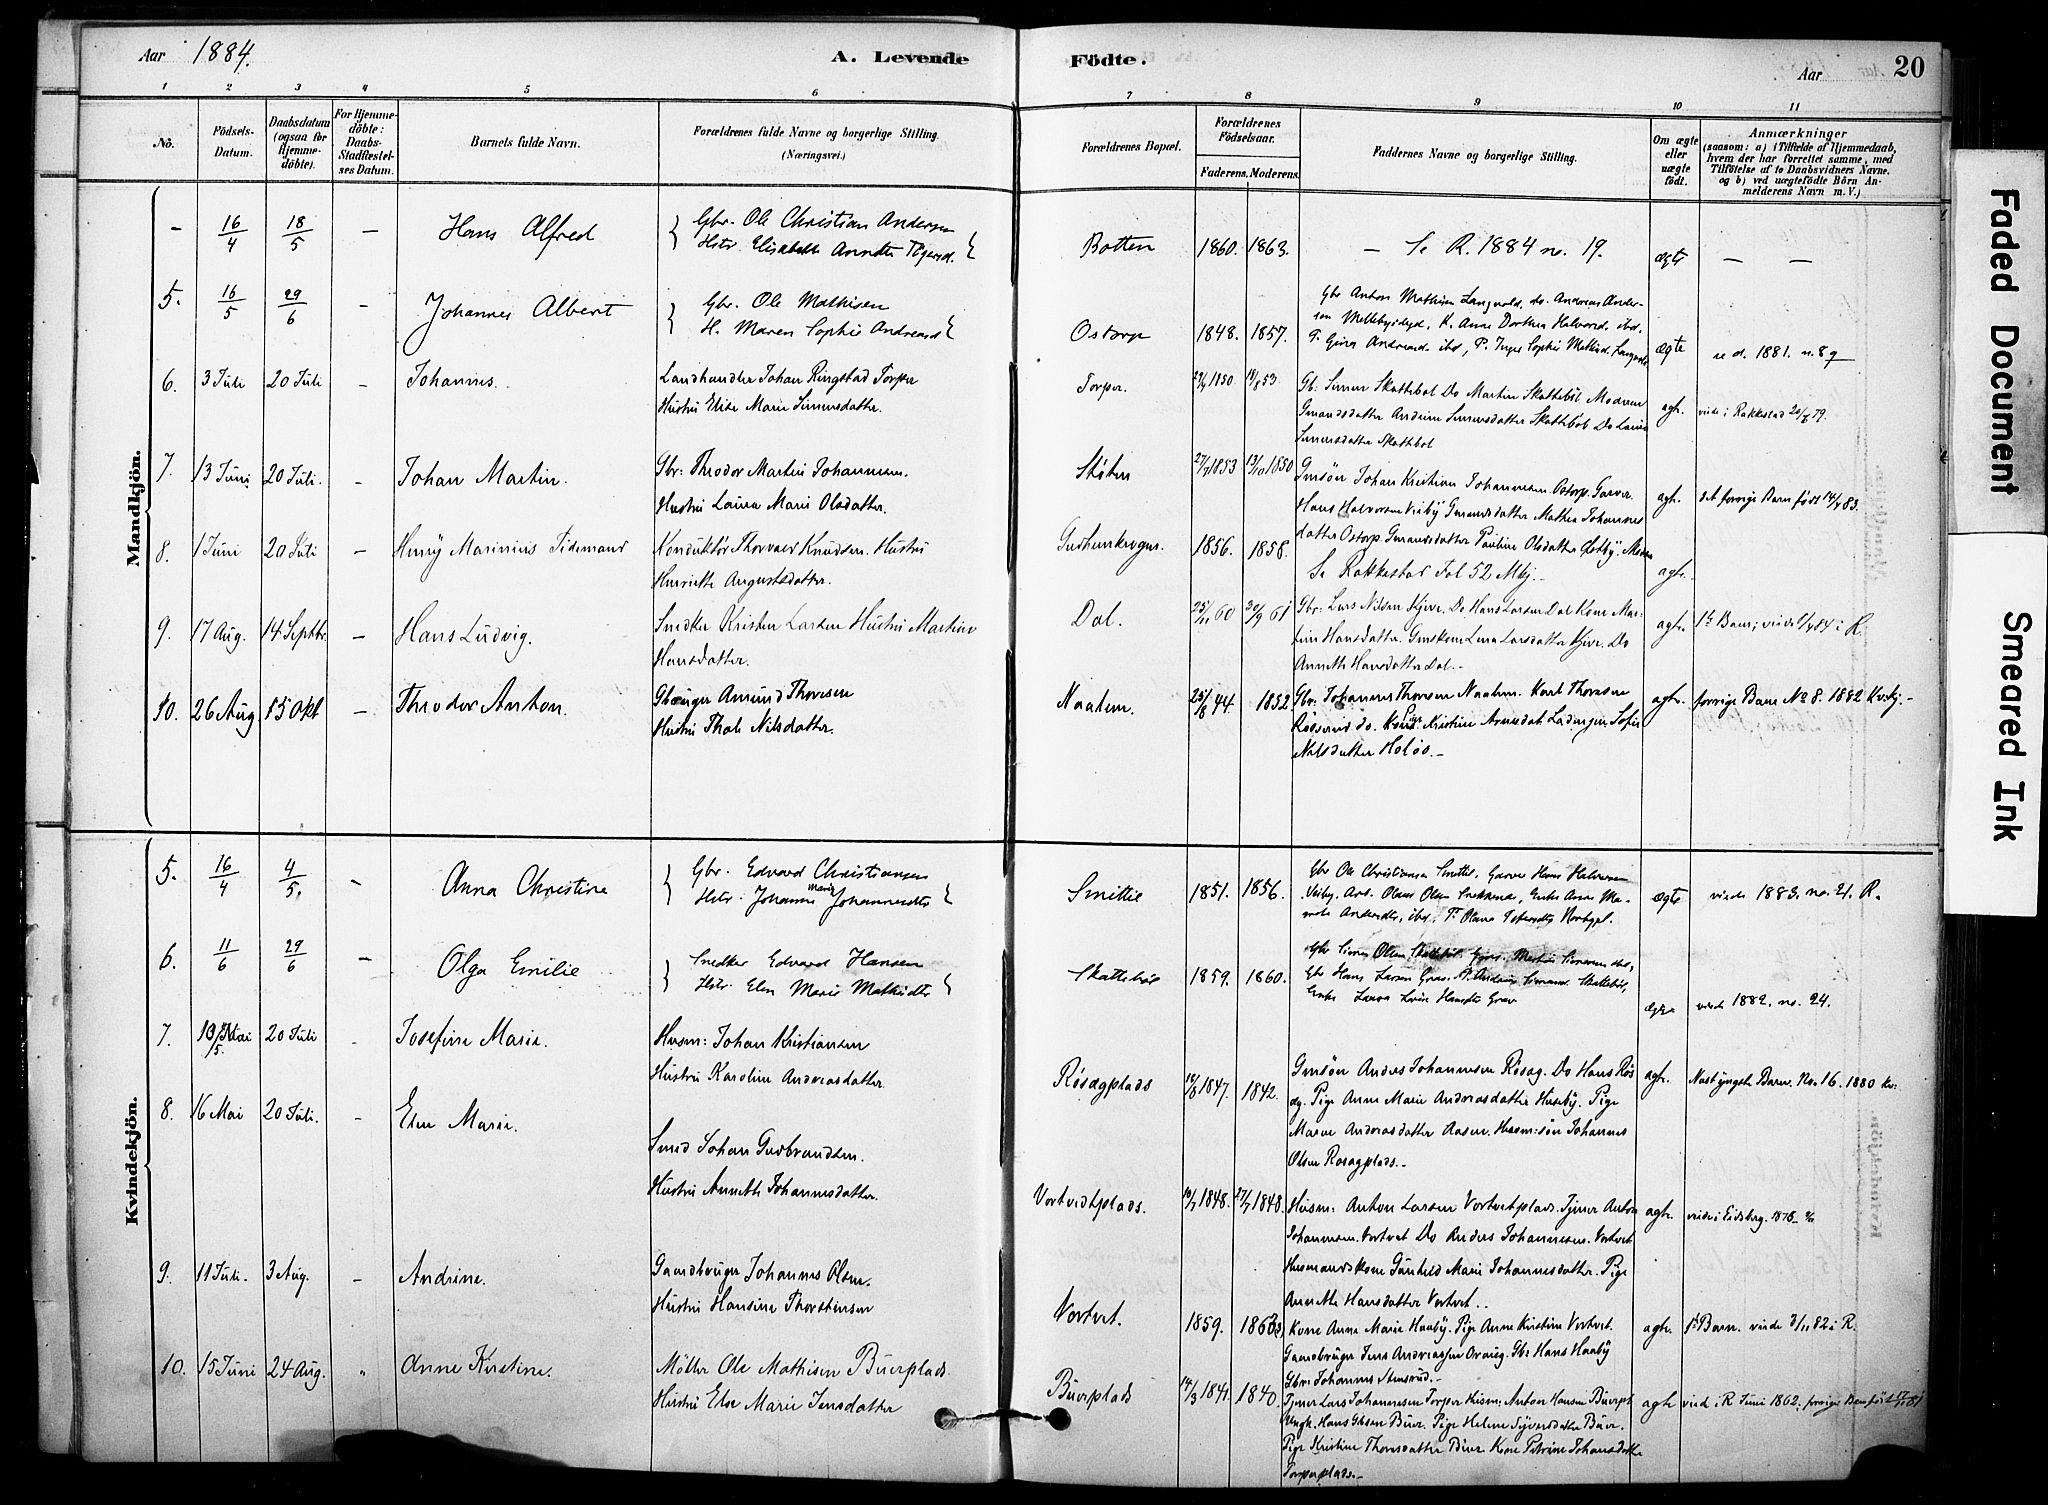 Aar 1884.
A. Levende Födte.
Aar
20
1 2 3 4 5 6 7 8 9 10 11
No.
Födsels-Datum.
Daabsdatum (ogsaa for Hjemme-döbte).
For Hjemme-döbte: Daabs-Stadfæstel-ses Datum.
Barnets fulde Navn.
Forældrenes fulde Navne og borgerlige Stilling. (Næringsvei.)
Forældrenes Bopæl.
Forældrenes Födselsaar.
Faderens. Moderens.
Faddernes Navne og borgerlige Stilling.
Om ægte eller uægte födt.
Anmærkninger (saasom: a) i Tilfælde af Hjemmedaab, hvem der har forrettet samme, med Tilföielse af to Daabsvidners Navne. og b) ved uægtefödte Börn An-melderens Navn m. V.)
Mandkjön.
- 16/4 18/5 - Hans Alfred
Gbr. Ole Christian Andersen
Hstr. Elisabeth Annette
Botten 1860. 1863. - Se R. 1884 no. 19. ægte - -
5. 16/5 29/6 - Johannes Albert
Gbr. Ole Mathisen
H. Maren Sophie Andreasd.
Ostorp 1848. 1857.
Gbr Anton Mathisen Langvold, do. Andreas Ander-
sen Mellebydsgd, K. Anne Dorthea Halvorsd. ibd.
ægte se d. 1881. n. 89
6. 3 Juli 20 Juli - Johannes.
Landhandler Johan Ringstad Torper
Hustru Elise Marie Simensdatter.
Torper. 1850. 53
Gb: Simen Skattebøl Do Martin Skattebøl Madam
Gmandsdatter Andrine Simensdatter Skattebøl Do Laura
Simensdatter Skattebøl
ægte. viede i Rakkestad 79.
7. 13 Juni 20 Juli. - Johan Martin.
Gbr: Theodor Martin Johannesen.
Hustru Laura Marie Olsdatter.
27/7 1853 13/10 1850
Gmsøn Johan Kristian Johannesen Ostorp. Garver
Hans Halvorsen Visby Gmandsdatter Mathea Johannes
datter Ostorp. Gmandsdatter Pauline Olsdatter
ægte. det forrige Barn født 83.
8. 1 Juni 20 Juli - Henry Marinius Tidemand
Konduktør Thorvald Knudsen. Hustru
Henriette Augustsdatter.
1856. 1858. Se Rakkestad Fol 52 Mkj. - ægte.
9. 17 Aug. 14 Septbr. - Hans Ludvig.
Snedker Kristen Larsen Hustru Martine
Hansdatter.
Dal. 25/11 60 30/9 61
Gbr: Lars Nilsen Hjver. Do Hans Larsen Dal Kone Mar-
tine Hansdatter. Gmskone Lena Larsdatter Hjver. Do
Annethe Hansdatter Dal. -
ægte. 1ste Barn; viede 84 i R.
10. 26 Aug 15 Okt - Theodor Anton.
Gbruger Amund Thoresen
Hustru Thale Nilsdatter.
Naalem. 25/8 44. 1852
Gbr: Johannes Thoresen Naalem. Karl Thoresen
Nilsdatter Holøs. -
ægte. forrige Barn No 8. 1882 Kvkj. -
Kvindekjön.
5. 16/4 4/5. - Anna Christine
Gbr. Edvard Christiansen
Hstr. Johanne Marie Johannesdtr
Smittie 1851. 1856.
Gbr Ole Christiansen Smittie. Garver Hans Halvorsen
Visby. Arb. Olaus Olsen
ægte viede 1883. no. 21. R.
6. 11/6 29/6 - Olga Emilie
Snedker Edvard Hansen
Hstr. Elen Marie Mathisdtr
Skattebøl 1859. 1860.
Gbr Hans Larsen Grav.
ægte viede 1882. no. 24.
7. 10 Mai 10/5. 20 Juli - Josefine Marie.
Husm: Johan Kristiansen
Hustru Karoline Andreasdatter.
Røsægplads 1847. 1842.
Gmsøn Anders Johannesen Røsæg. Do Hans Røs
æg. Pige Anne Marie Andreasdatter Huseby. Pige
Maren Andreasdatter Aasen. Husm:søn Johannes
Olsen Røsægplads. -
ægte. Næst yngste Barn. No. 16. 1880 Kv:
8. 16 Mai 20 Juli. - Elen Marie.
Smed Johan Gudbrandsen.
Hustru Annethe Johannesdatter.
Vortvedtplads. 1848. 27/7 1848.
Husm: Anton Larsen Vortvetplads. Tjener Anton
Johannesen. Vortvet Do Anders Johannesen. Vortvet
Husmandskone Gunhild Marie Johannesdatter. Pige
Annethe Hansdatter Vortvet. .
ægte. viede i Eidsberg. 1878
9. 11 Juli. 3 Aug. - Andrine.
Gaardbruger Johannes Olsen.
Hustru Hansine Thorstensen
Vortvet. 1859. 1863
Kone Anna Marie Haaby. Pige Anne Kristine Vortvet.
Gaardbruger Jens Andreassen Gbr Hans Haaby
Gbr: Johannes Stensrud. -
ægte. 1ste Barn. viede 3/11 82 i R.
10. 15 Juni 24 Aug. " Anne Kirstine.
Møller Ole Mathisen Buerplads.
Hustru Else Marie Jensdatter
Buerplads 14/3 1841. 1840.
Tjener Lars Johannesen Torper Husm: Anton Hansen Buerpl.
Ungk. Hans Gbsen Buer. Pige Helene Syversdatter Buer.
Pige Kristine Thorsdatter Buer. Kone Petrine Johansdatter
Torperplads. -
ægte viede i R Juni 1862. forrige Barn født
Faded Document
Smeared Ink